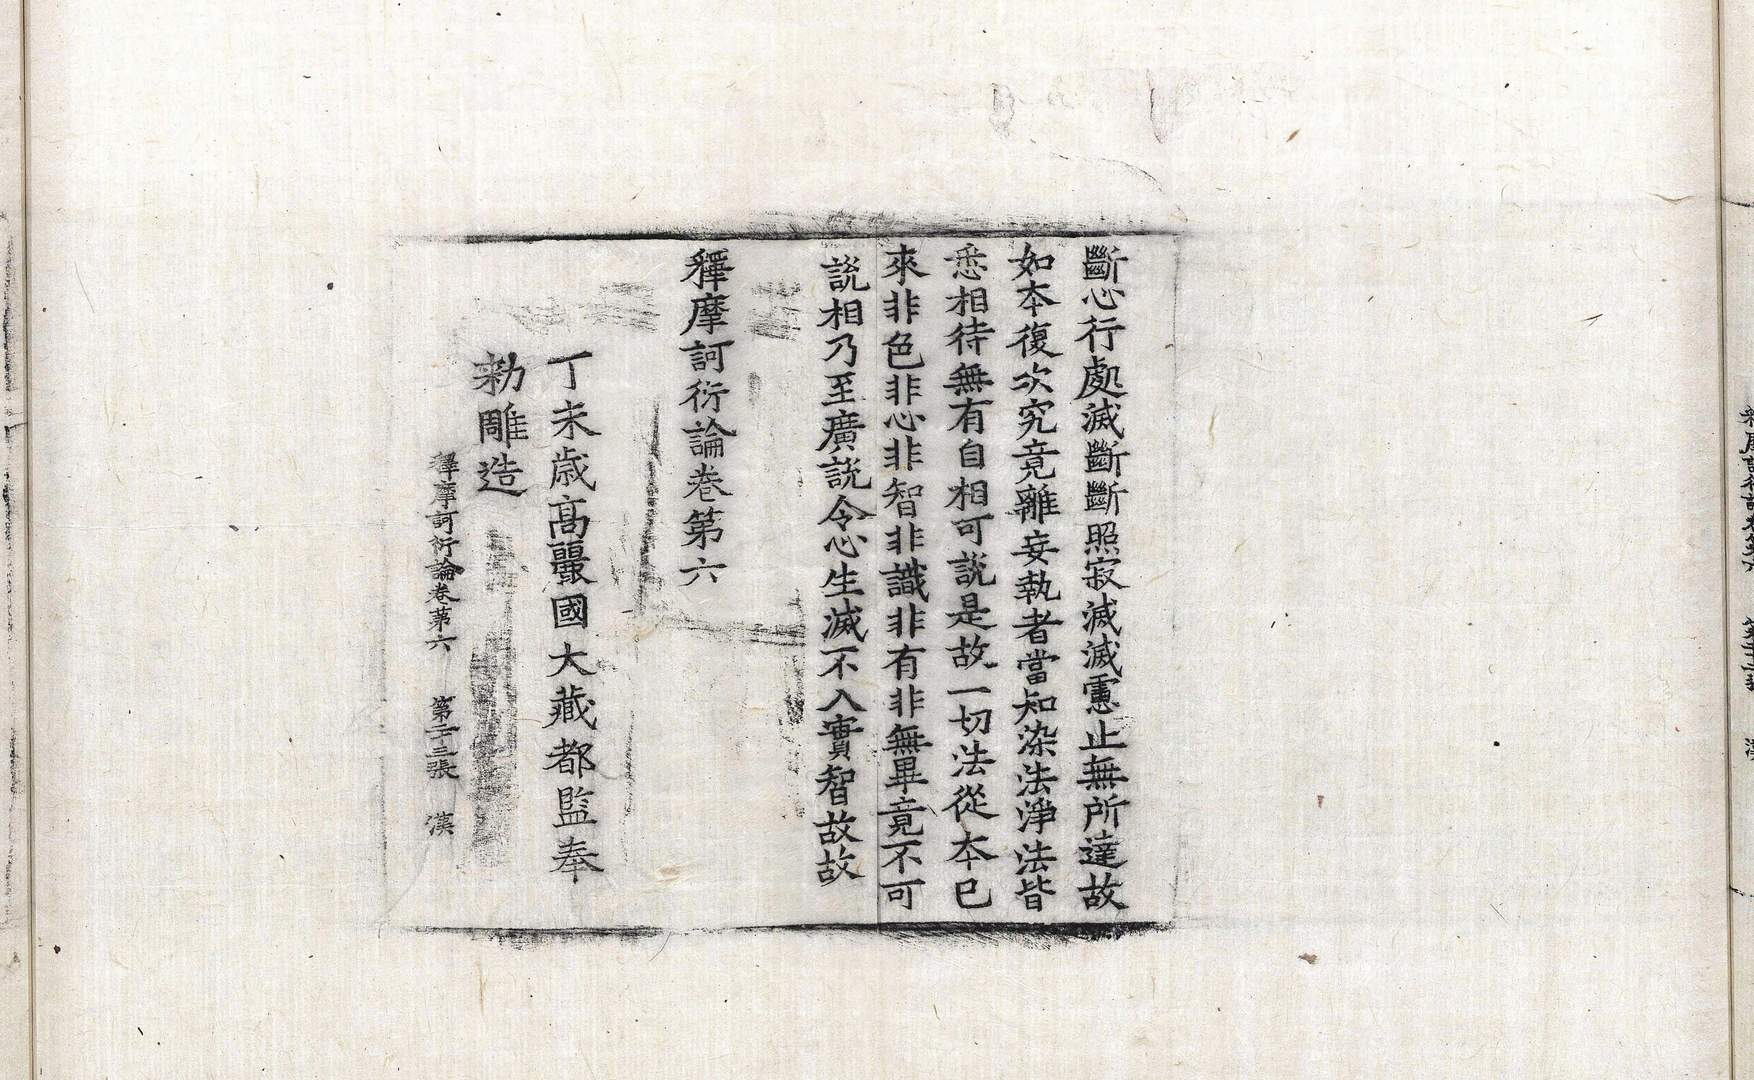 斷心行處滅斷斷照寂滅滅慮止無所達故
如本復次究竟離妄執者當知染法淨法皆
悉相待無有自相可說是故一切法從本已
來非色非心非智非識非有非無畢竟不可
說相乃至廣說令心生滅不入實智故故
釋摩訶衍論卷第六
丁未歲高麗國大藏都監奉
勅雕造
釋摩訶衍論卷第六 第二十三張 漢